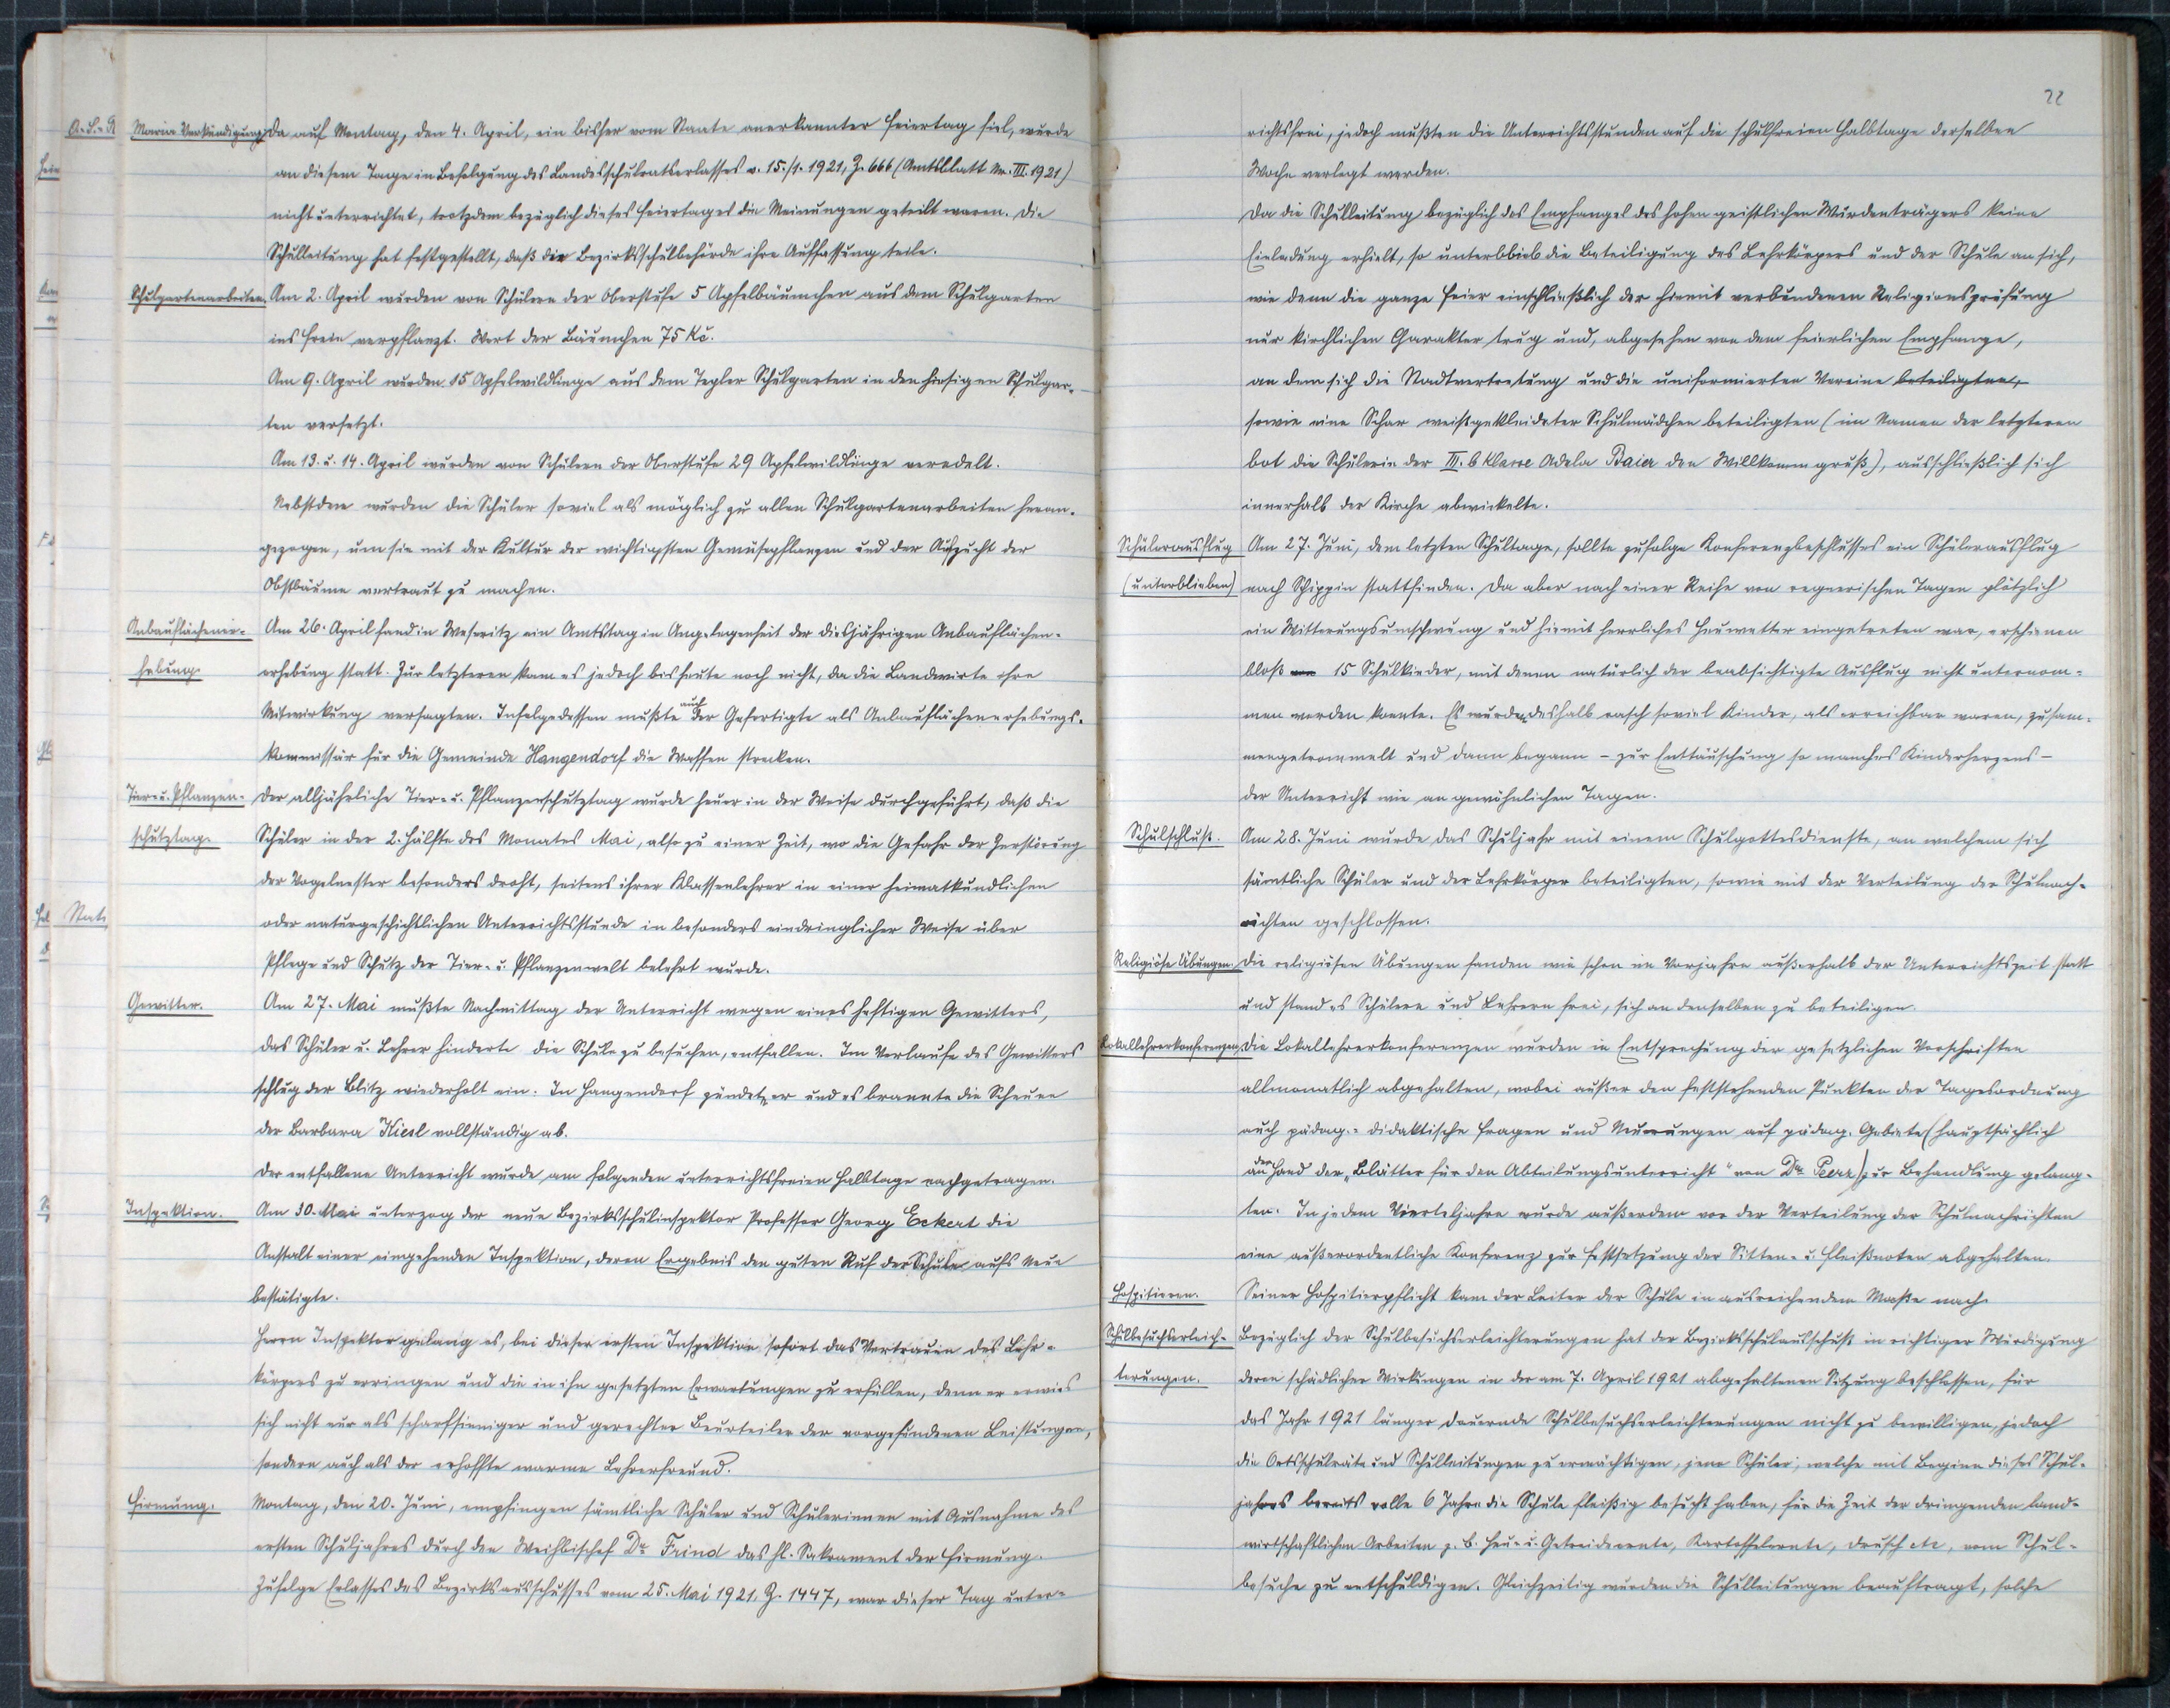 Maria Verkündigung. Da auf Montag, den 4. April, ein bisher vom Staate anerkannter Feiertag fiel, wurde
an diesem Tage in Befolgung des Landesschulratserlasses v. 15./1. 1921, Z. 666 (Amtsblatt Nr. III. 1921)
nicht unterrichtet, trotzdem bezüglich dieses Feiertages die Meinungen geteilt waren. Die
Schulleitung hat festgestellt, daß die Bezirksschulbehörde ihre Auffassung teile.
Schulgartenarbeiten. Am 2. April wurden von Schülern der Oberstufe 5 Apfelbäumchen aus dem Schulgarten
ins Freie verpflanzt. Wert der Bäumchen 75 Kč.
Am 9. April wurden 15 Apfelwildlinge aus dem Tepler Schulgarten in den hiesigen Schulgar-
ten versetzt.
Am 13. u. 14. April wurden von Schülern der Oberstufe 29 Apfelwildlinge veredelt.
Nebstdem wurden die Schüler soviel als möglich zu allen Schulgartenarbeiten heran-
gezogen, um sie mit der Kultur der wichtigsten Gemüsepflanzen und der Aufzucht der
Obstbäume vertraut zu machen.
Anbauflächener- Am 26. April fand in Weseritz ein Amtstag in Angelegenheit der diesjährigen Anbauflächen-
hebung. erhebung statt. Zur letzteren kam es jedoch bis heute noch nicht, da die Landwirte ihre
Mitwirkung versagten. Infolgedessen mußte auch der Gefertigte als Anbauflächenerhebungs-
kommissär für die Gemeinde Hangendorf die Waffen strecken.
Tier- u. Pflanzen- Der alljährliche Tier- u. Pflanzenschutztag wurde heuer in der Weise durchgeführt, daß die
schutztag. Schüler in der 2. Hälfte des Monates Mai, also zu einer Zeit, wo die Gefahr der Zerstörung
der Vogelnester besonders droht, seitens ihrer Klassenlehrer in einer heimatkundlichen
oder naturgeschichtlichen Unterrichtsstunde in besonders eindringlicher Weise über
Pflege und Schutz der Tier- u. Pflanzenwelt belehrt wurde.
Gewitter. Am 27. Mai mußte Nachmittag der Unterricht wegen eines heftigen Gewitters,
das Schüler u. Lehrer hinderte die Schule zu besuchen, entfallen. Im Verlaufe des Gewitters
schlug der Blitz wiederholt ein. In Hangendorf zündete er und es brannte die Scheune
der Barbara Kiesl vollständig ab.
Der entfallene Unterricht wurde am folgenden unterrichtsfreien Halbtage nachgetragen.
Inspektion. Am 30. Mai unterzog der neue Bezirksschulinspektor Professor Georg Eckert die
Anstalt einer eingehenden Inspektion, deren Ergebnis den guten Ruf der Schule aufs Neue
bestätigte.
Herrn Inspektor gelang es, bei dieser ersten Inspektion sofort das Vertrauen des Lehr-
körpers zu erringen und die in ihn gesetzten Erwartungen zu erfüllen, denn er erwies
sich nicht nur als scharfsinniger und gerechter Beurteiler der vorgefundenen Leistungen,
sondern auch als der erhoffte warme Lehrerfreund.
Firmung. Montag, den 20. Juni, empfingen sämtliche Schüler und Schülerinnen mit Ausnahme des
ersten Schuljahres durch den Weihbischof Dr. Frind das hl. Sakrament der Firmung.
Zufolge Erlasses des Bezirksausschusses vom 25. Mai 1921. Z. 1447, war dieser Tag unter-
22
richtsfrei, jedoch mußten die Unterrichtsstunden auf die schulfreien Halbtage derselben
Woche verlegt werden.
Da die Schulleitung bezüglich des Empfanges des hohen geistlichen Würdenträgers keine
Einladung erhielt, so unterblieb die Beteiligung des Lehrkörpers und der Schule an sich,
wie denn die ganze Feier einschließlich der hiemit verbundenen Religionsprüfung
nur kirchlichen Charakter trug und, abgesehen von dem feierlichen Empfange,
an dem sich die Stadtvertretung und die uniformierten Vereine beteiligten,
sowie eine Schar weißgekleideter Schulmädchen beteiligten (im Namen der letzteren
bot die Schülerin der III. b Klasse Adela Baier den Willkommgruß), ausschließlich sich
innerhalb der Kirche abwickelte.
Schülerausflug Am 27. Juni, dem letzten Schultage, sollte zufolge Konferenzbeschlusses ein Schülerausflug
(unterblieben) nach Schippin stattfinden. Da aber nach einer Reihe von regnerischen Tagen plötzlich
ein Witterungsumschwung und hiemit herrliches Heuwetter eingetreten war, erschienen
bloß 15 Schulkinder, mit denen natürlich der beabsichtigte Ausflug nicht unternom-
men werden konnte. Es wurden deshalb rasch soviel Kinder, als erreichbar waren, zusam-
mengetrommelt und dann begann – zur Enttäuschung so manches Kinderherzens –
der Unterricht wie an gewöhnlichen Tagen.
Schulschluß. Am 28. Juni wurde das Schuljahr mit einem Schulgottesdienste, an welchem sich
sämtliche Schüler und der Lehrkörper beteiligten, sowie mit der Verteilung der Schulnach-
richten geschlossen.
Religiöse Übungen. Die religiösen Übungen fanden wie schon im Vorjahre außerhalb der Unterrichtszeit statt
und stand es Schülern und Lehrern frei, sich an denselben zu beteiligen.
Lokallehrerkonferenzen. Die Lokallehrerkonferenzen wurden in Entsprechung der gesetzlichen Vorschriften
allmonatlich abgehalten, wobei außer den feststehenden Punkten der Tagesordnung
auch pädag.-didaktische Fragen und Neuerungen auf pädag. Gebiete (hauptsächlich
an der Hand der „Blätter für den Abteilungsunterricht" von Dr. Peerz) zur Behandlung gelang-
ten. In jedem Vierteljahre wurde außerdem vor der Verteilung der Schulnachrichten
eine außerordentliche Konferenz zur Festsetzung der Sitten- u. Fleißnoten abgehalten.
Hospitieren. Seiner Hospitierpflicht kam der Leiter der Schule in ausreichendem Maße nach.
Schulbesuchserleich- Bezüglich der Schulbesuchserleichterungen hat der Bezirksschulausschuß in richtiger Würdigung
terungen. deren schädlicher Wirkungen in der am 7. April 1921 abgehaltenen Sitzung beschlossen, für
das Jahr 1921 länger dauernde Schulbesuchserleichterungen nicht zu bewilligen, jedoch
die Ortsschulräte und Schulleitungen zu ermächtigen, jene Schüler, welche mit Beginn dieses Schul-
jahres bereits volle 6 Jahre die Schule fleißig besucht haben, für die Zeit der dringenden land-
wirtschaftlichen Arbeiten z. B. Heu- u. Getreideernte, Kartoffelernte, Drusch etc, vom Schul-
besuche zu entschuldigen. Gleichzeitig wurden die Schulleitungen beauftragt, solche